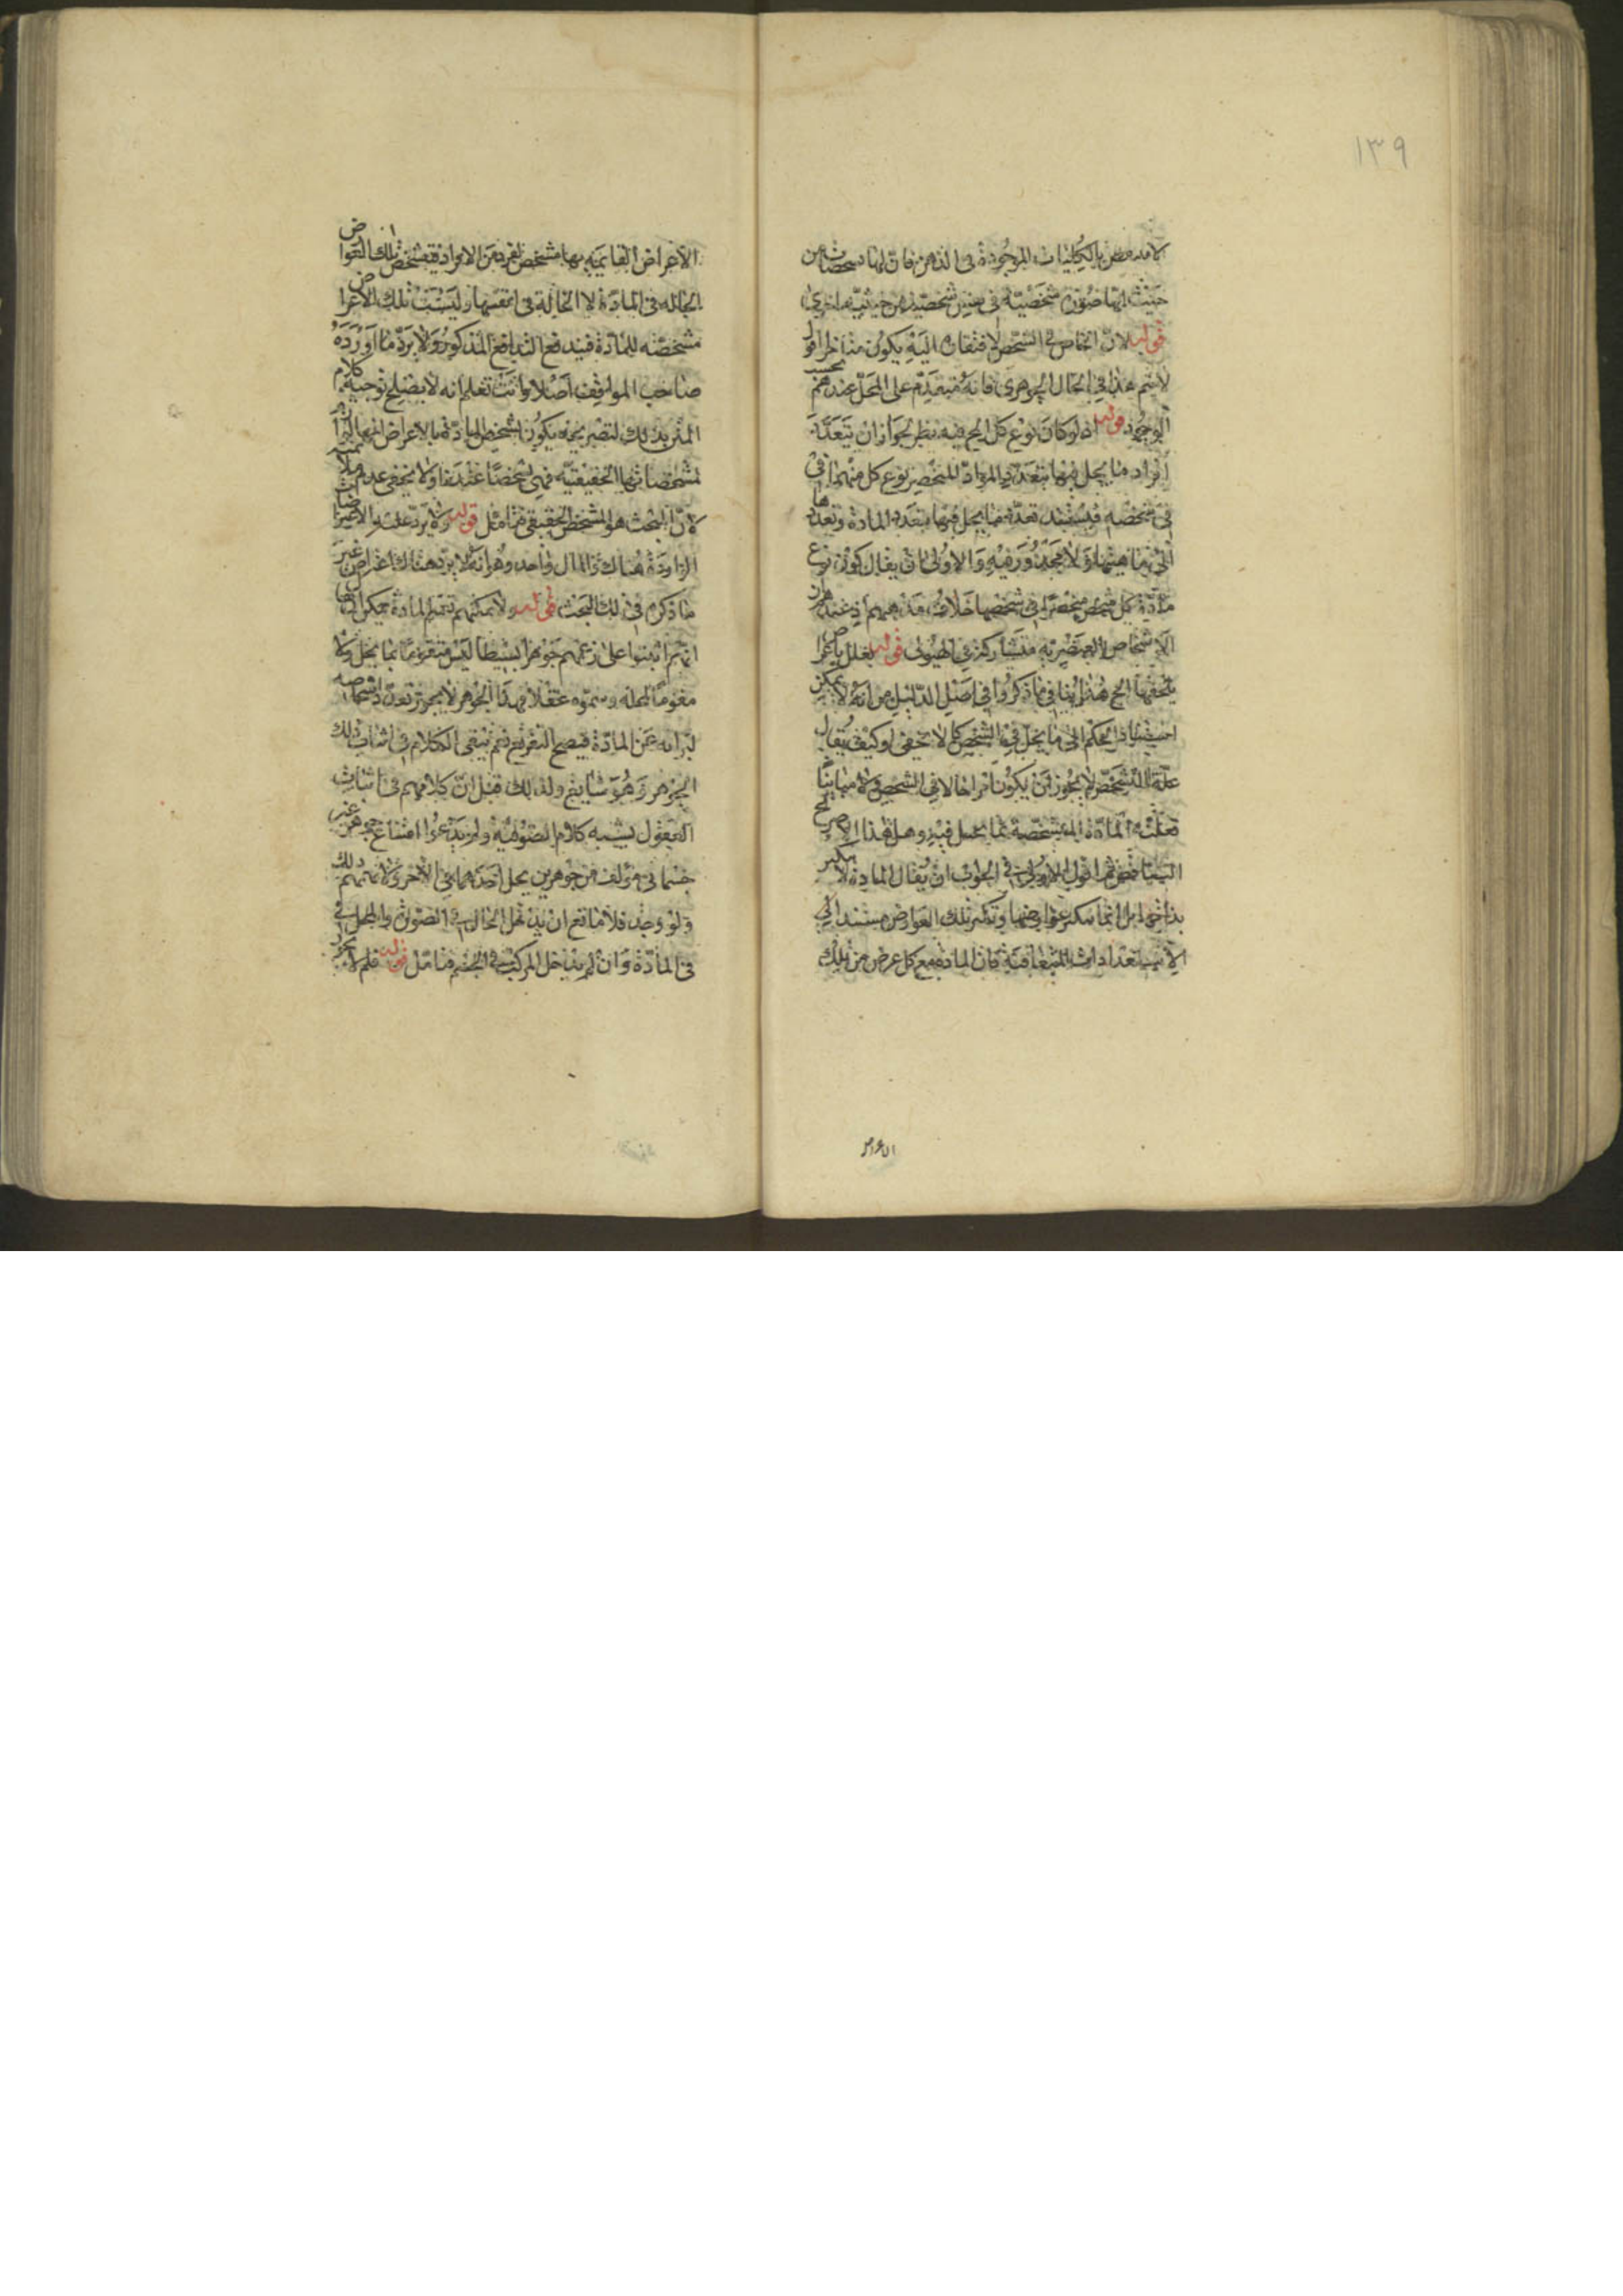 ١٣٩
بالكليات الموجودة فى الذهن فان لها تشخصات من
حيث انها صورة شخصية فى نفس شخصية من حيثية اخرى
قوله لان الخاص فى الشخص لافتقاره اليه يكون متاخرا اقول
لا يتم هذا فى الحال الجوهرى فانه متقدم على المحل عندهم بحسب
الوجود قوله اذ لو كان نوع كل الخ فيه نظر لجواز ان يتعدد
افراد ما يحل فيها بتعدد المواد نوع كل منها فى
فى شخصه فيستند تعدد ما يحل فيها بتعدد المادة وتعددها
الى ماهيتها ولا محذور فيه والاولى ان يقال كون نوع
مادة كل شخص منحصرا فى شخصها خلاف مذهبهم اذ عندهم ان
الاشخاص العنصرية متشاركة فى الهيولى قوله تعلل باعراض
تلحقها الخ هذا ينافى ما ذكروا فى اصل الدليل من انه لا يمكن
الى ما يحل فى الشخص كما لا يخفى وكيف يقال
علة التشخص لا يجوز ان يكون امرا حالا فى الشخص ولا مباينا
فعلته المادة المتشخصة بما يحل فيه وهل هذا الا صريح
التناقض ثم اقول الاولى فى الجواب ان يقال المادة لا تتكثر
بذاتها بل انما تتكثر عوارضها وتكثر تلك العوارض مستند الى
الاستعدادات المتعاقبة فان المادة مع كل عرض من تلك
الاعراض
الاعراض القائمة بها مشخص لفرد من الافراد فتشخص تلك العوارض
الحالة فى المادة لا الحالة فى انفسها وليست تلك الاعراض
مشخصة للمادة فيندفع التدافع المذكور ولا يرد ما اورده
صاحب المواقف اصلا وانت تعلم انه لا يصلح توجيه كلام
المتن بذلك لتصريحه بكون تشخص المادة بالاعراض
لمشخصاتها الحقيقية فهى مشخصا عندنا ولا يخفى عدم
لان البحث هو المشخص الحقيقى فتامل قوله ولا يرد عليه الاعتراضات
الواردة هناك والمآل واحد وهو انه لا يرد هناك اعتراض غير
ما ذكره فى ذلك البحث قوله ولا يمكنهم تعميم المادة يمكن ان
انهم اثبتوا على زعمهم جوهرا بسيطا ليس متقوما بما يحل ولا
مقوما لمحله وسموه عقلا فهذا الجوهر لا يجوز تعدد اشخاصه
لبراءته عن المادة فيصح التفريع نعم يبقى الكلام فى اثبات ذلك
الجوهر وهو شايع ولذلك قيل ان كلامهم فى اثبات
العقول يشبه كلام الصوفية ولم يدعوا امتناع جوهر غير
جسمانى مؤلف من جوهرين يحل احدهما فى الاخر ولا يمكنهم ذلك
ولو وجد فلا مانع ان يدخل الحال فى الصورة والمحل فى
فى المادة وان لم يدخل المركب فى الجسم فتامل قوله فلم لا يجوز